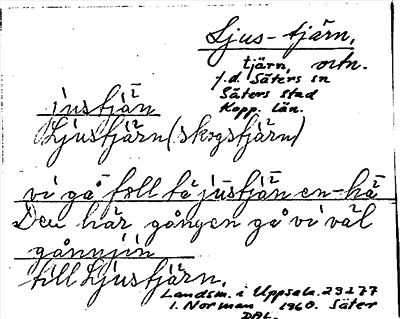 Ljus-tjärn,
tjärn, ortn.
f.d. Säters sn
Säters stad
Kopp. län.
justjän
Ljustjärn (skogstjärn)
vi gå foll tå justjän en-hä
Den här gången gå vi väl
gånnjin
till Ljustjärn.
Landsm. i Uppsala 29277
I. Norman 1960. Säter
DAL.